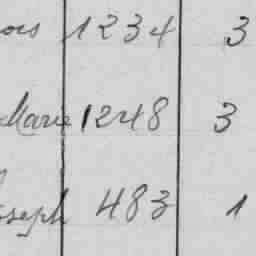 ois 1234 3
Marie 1248 3
oseph 483 1